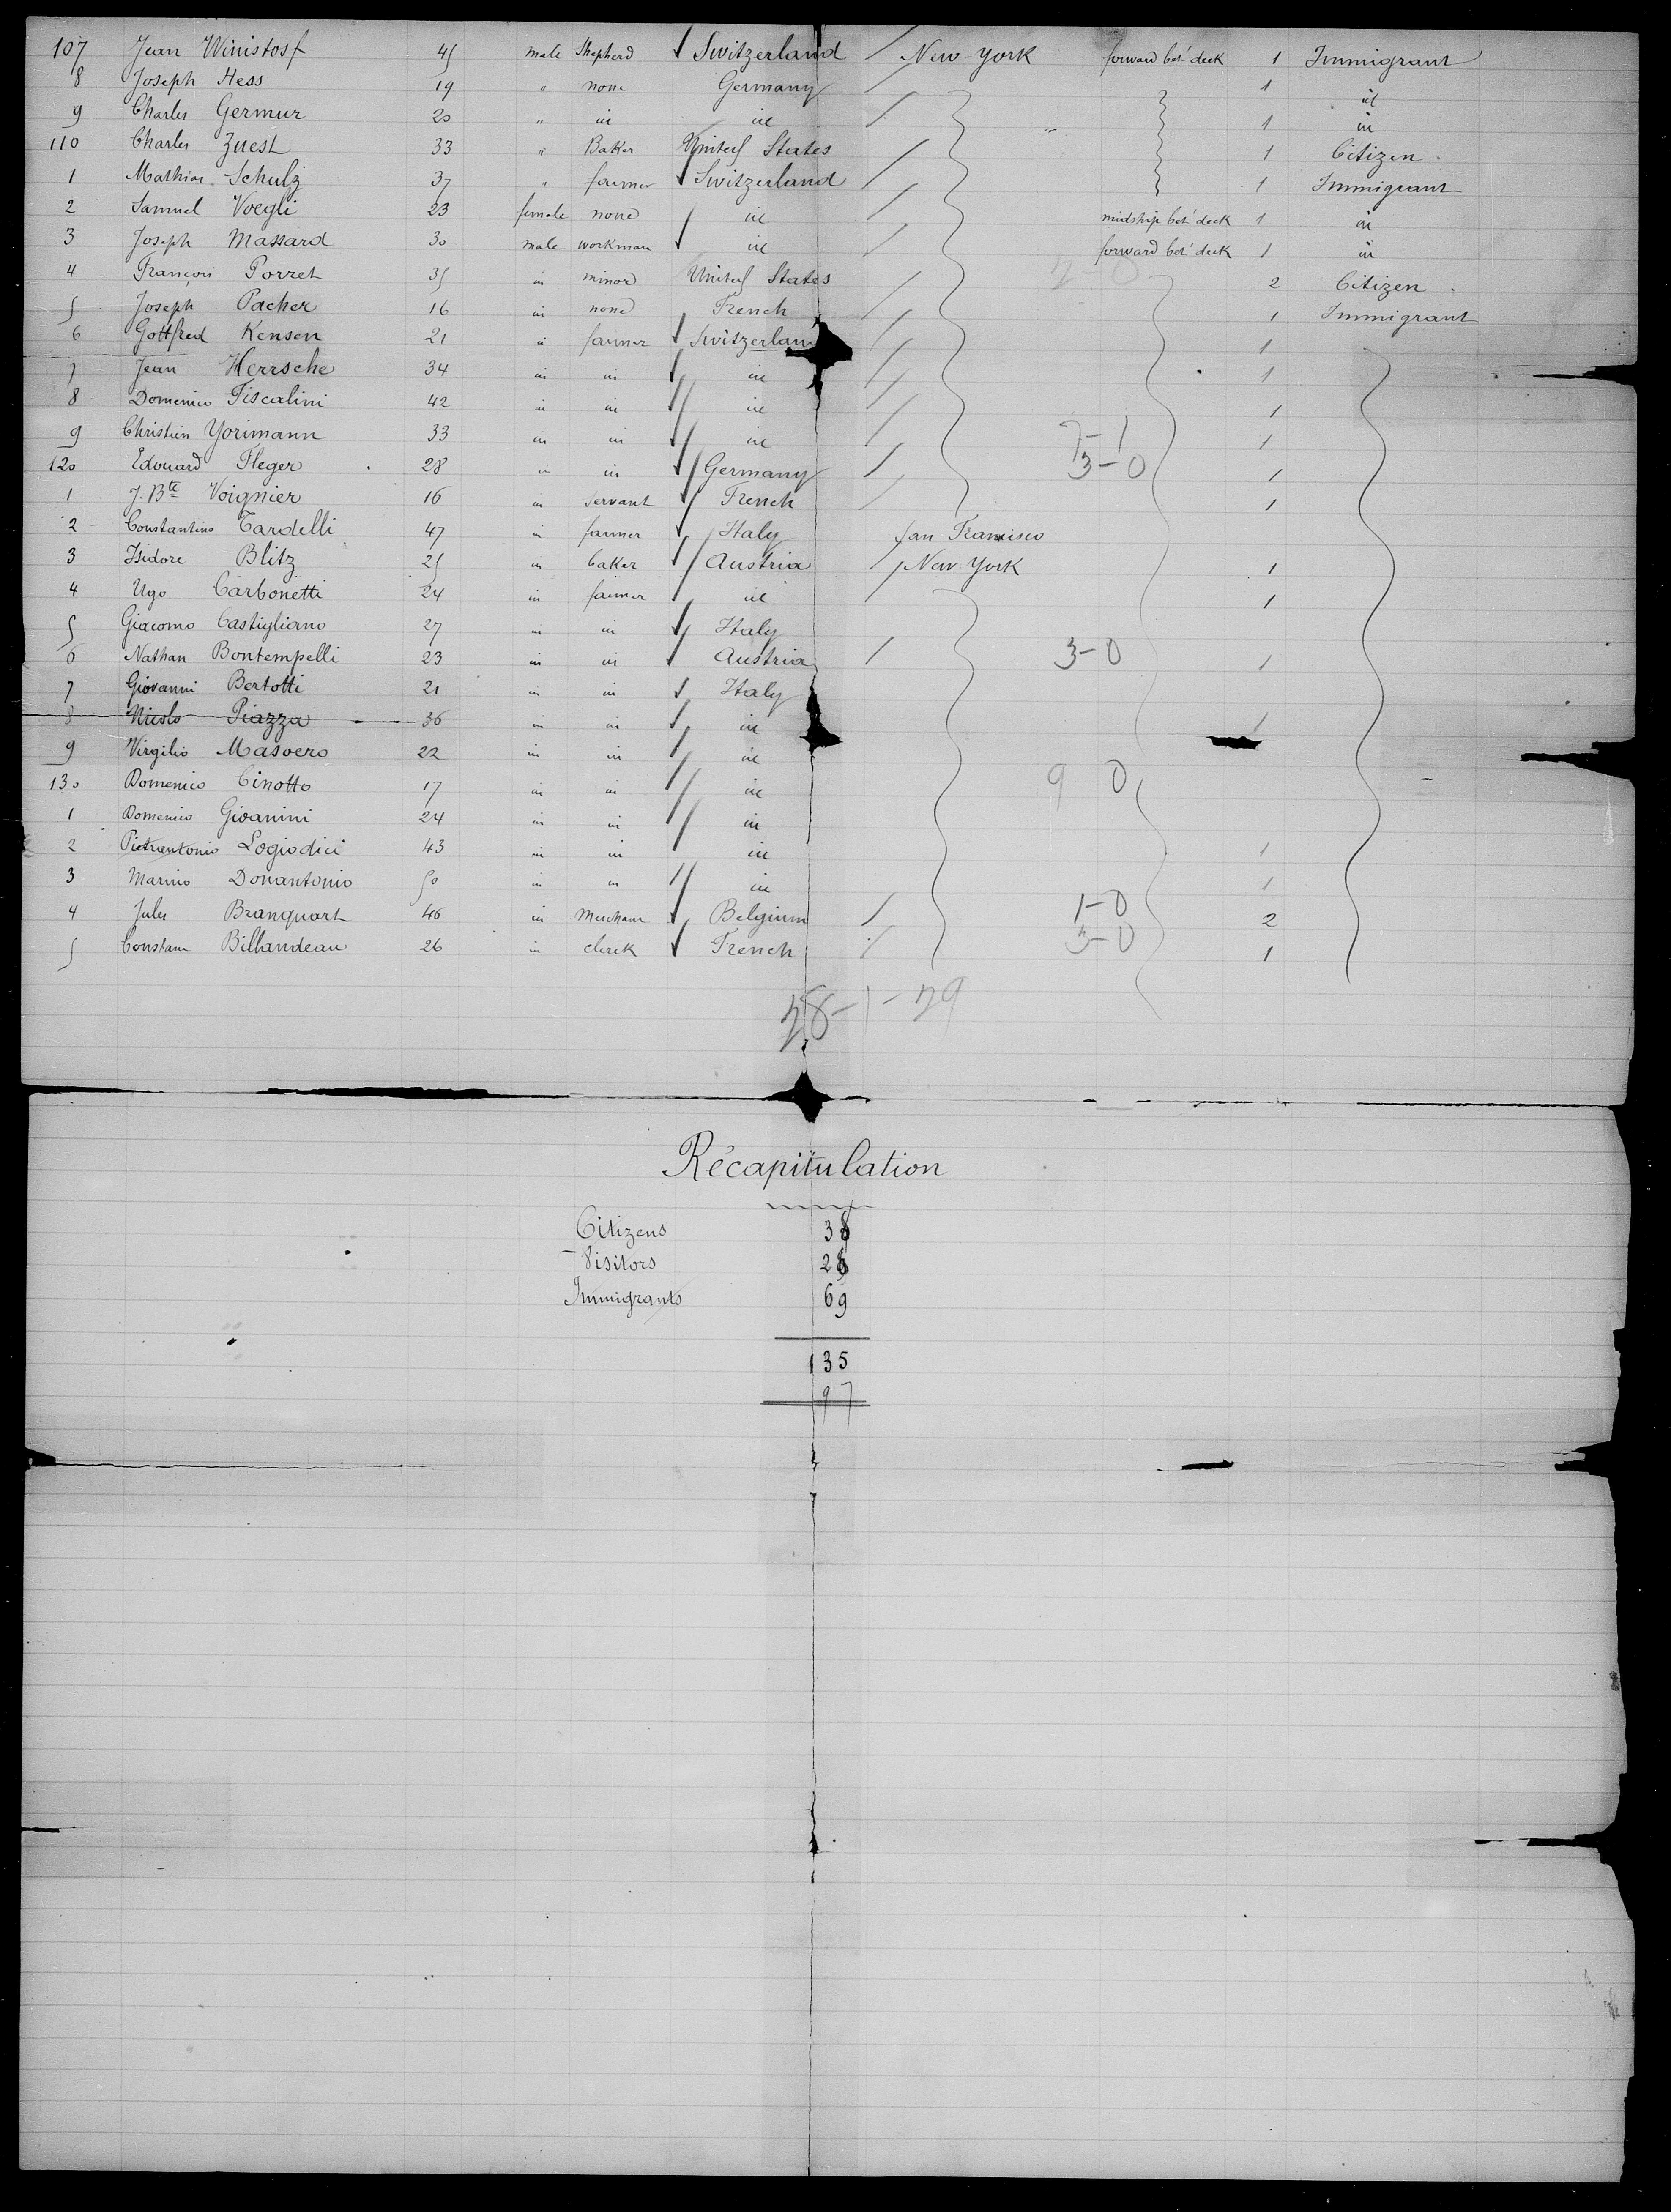 107 Jean Winistorf 45 male Shepherd Switzerland New York forward bet' deck 1 Immigrant
8 Joseph Hess 19 " none Germany 1 id
9 Charles Germur 20 " id id " 1 id
110 Charles Zuest 33 " Baker United States 1 Citizen
1 Mathias Schulz 37 " farmer Switzerland 1 Immigrant
2 Samuel Voegli 23 female none id midship bet' deck 1 id
3 Joseph Massard 30 male workman id forward bet' deck 1 id
4 François Porret 35 id minor United States 2 Citizen
5 Joseph Pacher 16 id none French 1 Immigrant
6 Gottfred Kensen 21 id farmer Switzerland 1
7 Jean Herrsche 34 id id id 1
8 Domenico Fiscalini 42 id id id 1
9 Christien Yorimann 33 id id id 7-1 1
120 Edouard Fleger 28 id id Germany 3-0 1
1 J. Bte Voignier 16 id servant French 1
2 Constantino Tardelli 47 id farmer Italy San Francisco
3 Isidore Blitz 25 id baker Austria New York 1
4 Ugo Carbonetti 24 id farmer id 1
5 Giacomo Castigliano 27 id id Italy
6 Nathan Bontempelli 23 id id Austria 3-0 1
7 Giovanni Bertotti 21 id id Italy
8 Nicolo Piazza 36 id id id 1
9 Virgilio Masoero 22 id id id
130 Domenico Cinotto 17 id id id 9 0
1 Domenico Gioanini 24 id id id
2 Pietrantonio Logiodici 43 id id id 1
3 Marino Donantonio 50 id id id 1
4 Jules Branquart 46 id Merchant Belgium 1-0 2
5 Constant Billandeau 26 id clerck French 3-0 1
28-1-29
Récapitulation
Citizens 38
Visitors 28
Immigrants 69
135
97